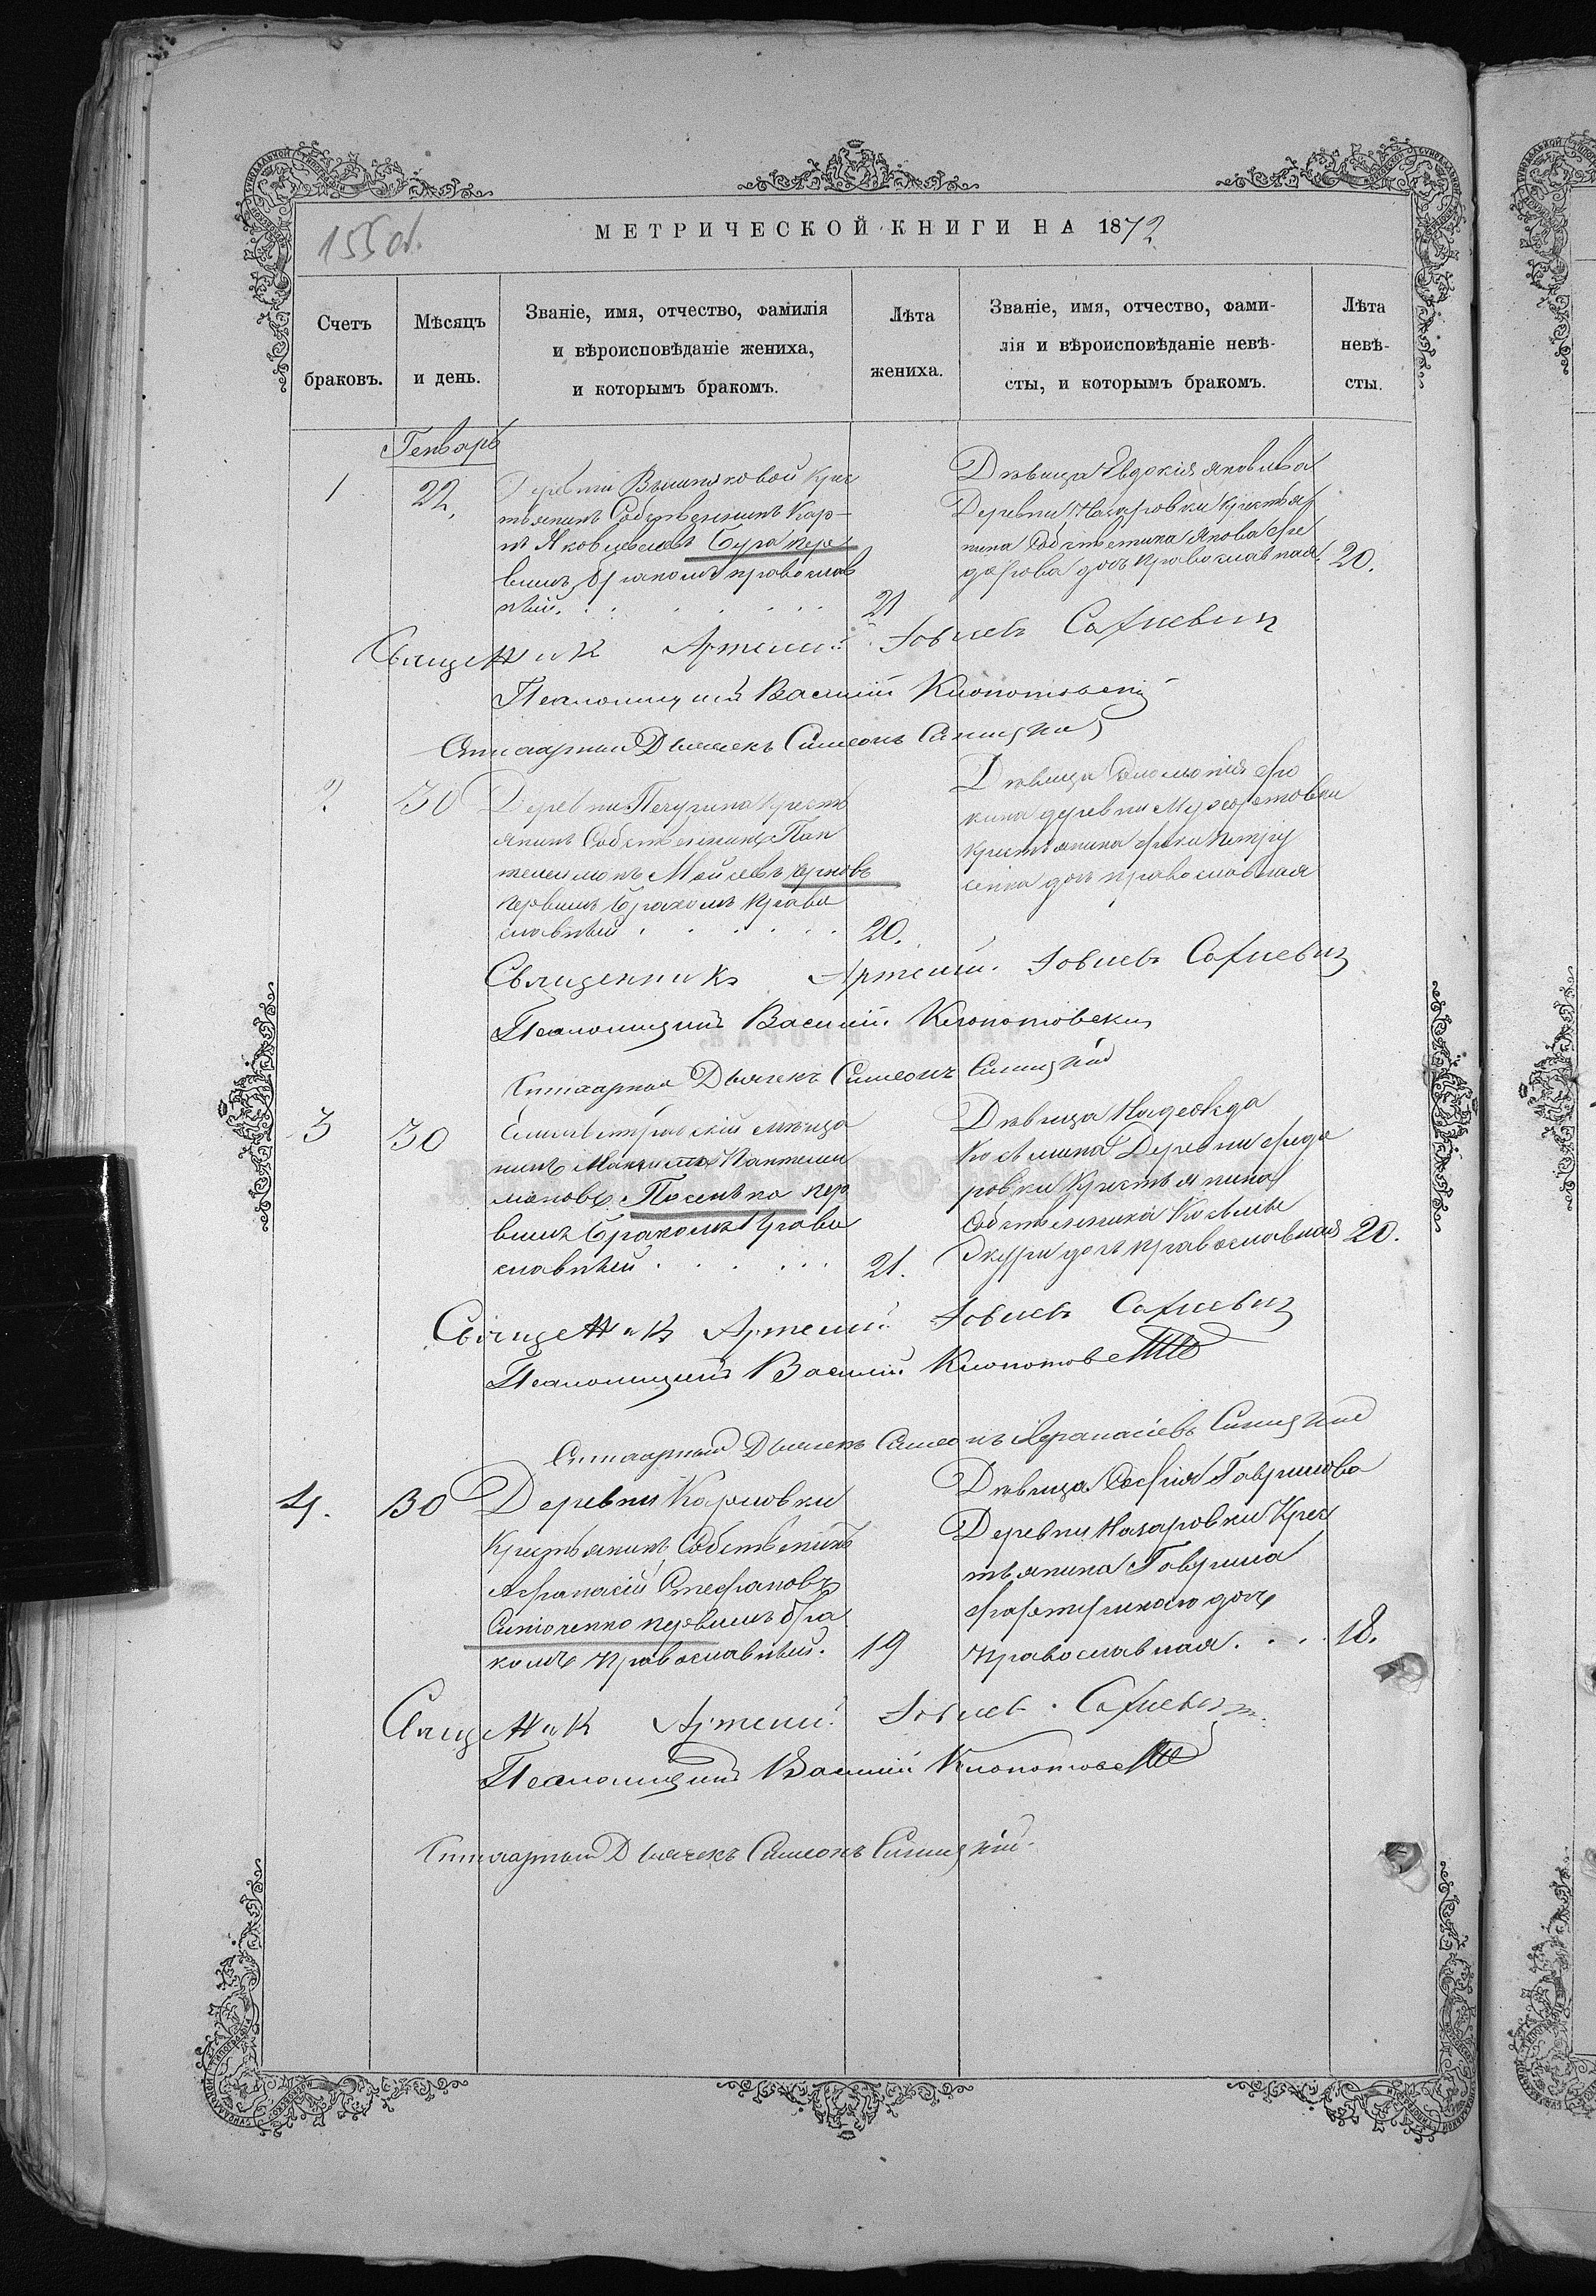 155 об.
МЕТРИЧЕСКОЙ КНИГИ НА 1872
Счетъ браковъ.
Мѣсяцъ и день.
Званіе, имя, отчество, фамилія
и вѣроисповѣданіе жениха,
и которымъ бракомъ.
Лѣта жениха.
Званіе, имя, отчество, фами-
лія и вѣроисповѣданіе невѣ-
сты, и которымъ бракомъ.
Лѣта невѣ-
сты.
Генварь
1
22.
Деревни Вишняковой Крес
тьянинъ Собственникъ Кар-
пъ Яковлевъ Бура пер
вымъ бракомъ православ
ный.
21
Дѣвица Евдокія Яковлева
Деревни Назаровки Крестья
нина Собственника Якова Фе
дорова дочь православная
20.
Священникъ Артемій Іовлевъ Сафіевичъ
Псаломщикъ Василій Клопотовскій
Дьячекъ Симеонъ Синицкій
2
30
Деревни Пичугина Кресть
янинъ Собственникъ Пан
телеимонъ Мойсеевъ
первымъ бракомъ право
славный
20.
Дѣвица Фо
кина деревни
Крестьянина Фоки
дочь православная
Священникъ Артемій Іовлевъ Сафіевичъ
Псаломщикъ Василій Клопотовскій
Дьячекъ Симеонъ Синицкій
3
30
Елисаветградскій мѣща
нинъ Пантелеи
моновъ Пасенько пер
вымъ бракомъ право
славный
21.
Дѣвица Надежда
Козьмина Деревни Федо
ровки Крестьянина
Собственника Козьмы
дочь православная
20.
Священникъ Артемій Іовлевъ Сафіевичъ
Псаломщикъ Василій Клопотовскій
Дьячекъ Симеонъ Афанасіевъ Синицкій
4.
30
Деревни Карловки
Крестьянинъ Собственникъ
Афанасій Стефановъ
первымъ бра
комъ православный.
19
Дѣвица Софія Гаврилова
Деревни Назаровки Крес
тьянина Гаврила
дочь
православная
18.
Священникъ Артемій Іовлевъ Сафіевичъ
Псаломщикъ Василій Клопотовскій
Дьячекъ Симеонъ Синицкій